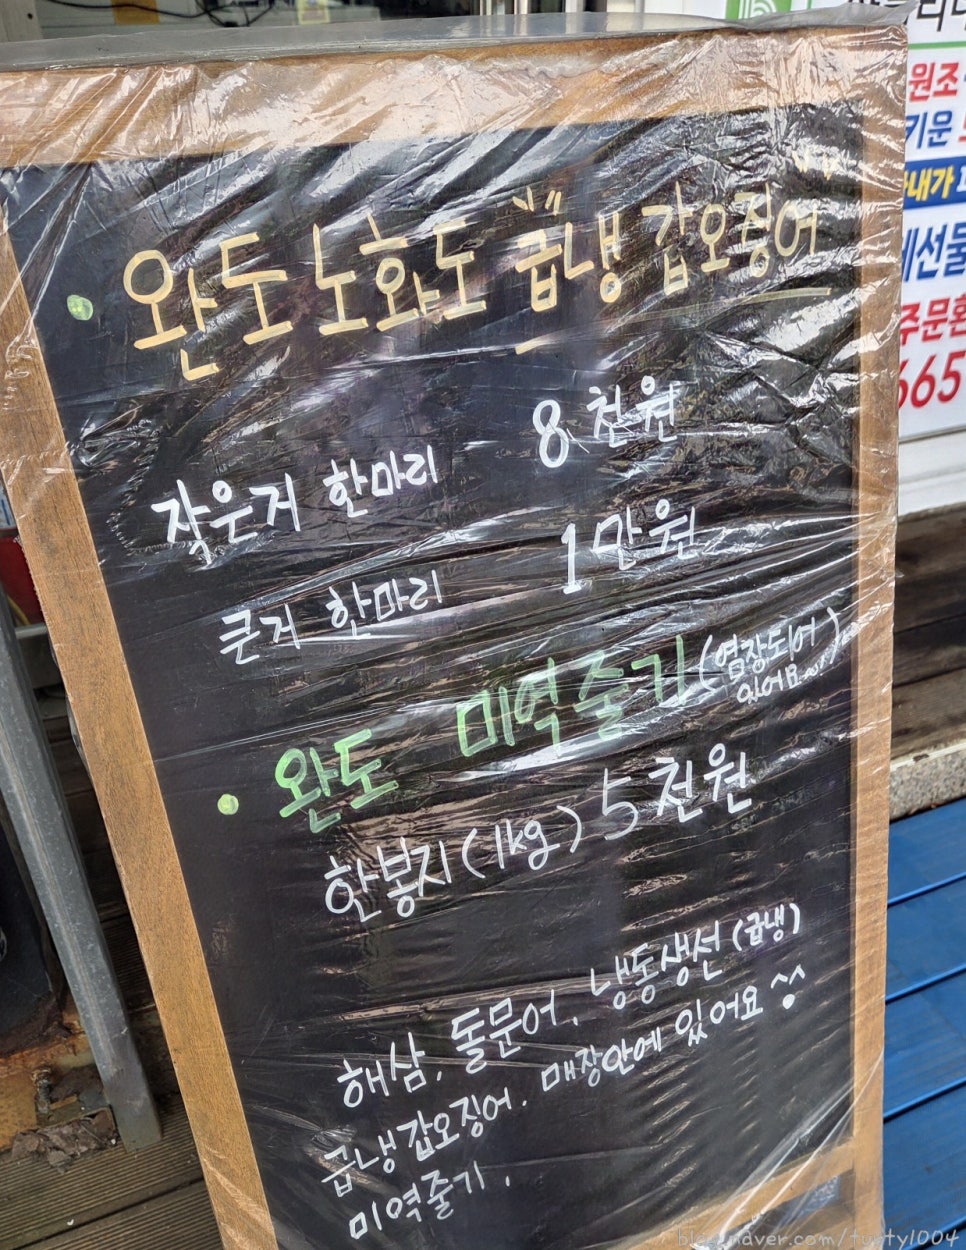 완도 노화도 급냉 갑오징어
작은거 한마리 8천원
큰거 한마리 1만원
완도 미역줄기 (염장되어
있어요~)
한봉지(1kg) 5천원
해삼, 돌문어, 냉동생선(급냉)
급냉갑오징어. 매장안에 있어요^^
미역줄기.
원조
키운
내가
선물
주문환
665
blog.naver.com/tusty1004